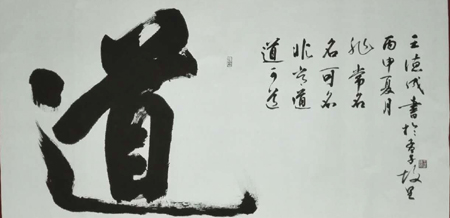 道
道可道
非常道
名可名
非常名
丙申夏月
王德成書於老子故里